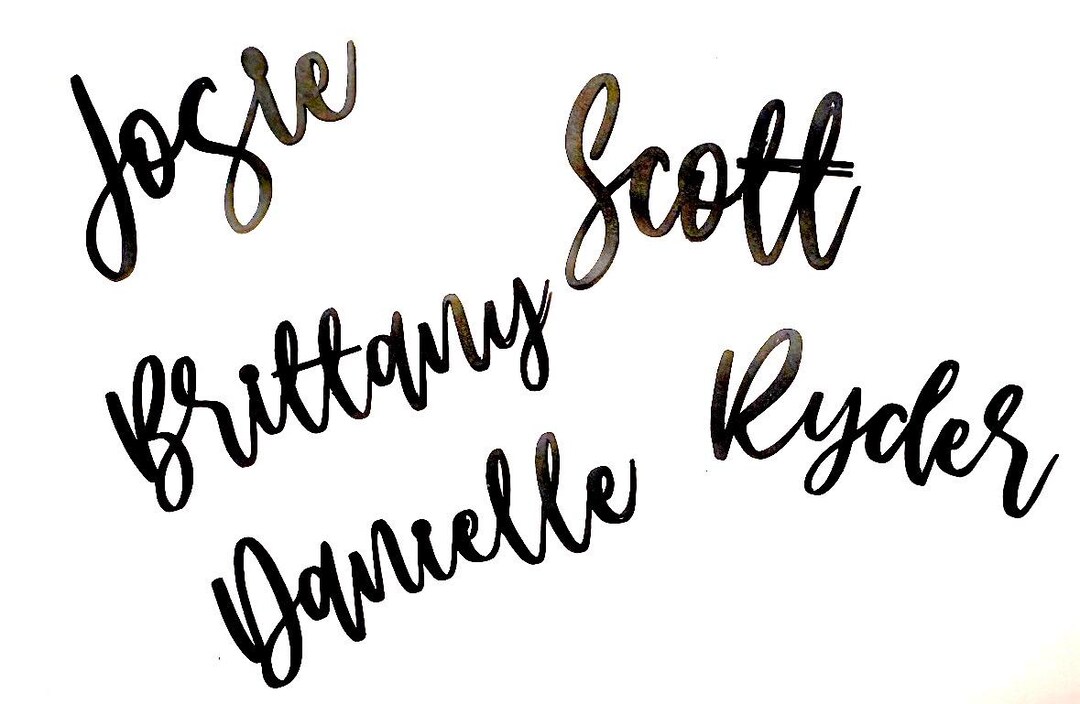 Josie
Scott
Brittany
Ryder
Danielle